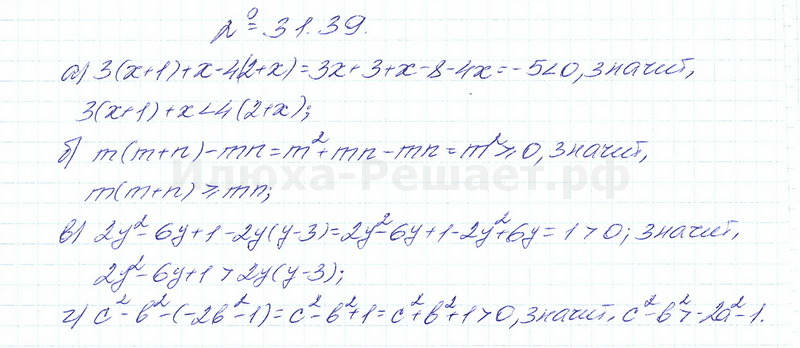 № 31.39.
а) 3(x+1)+x-4(2+x)=3x+3+x-8-4x=-5<0, значит,
3(x+1)+x<4(2+x);
б) m(m+n)-mn=m²+mn-mn=m²≥0, значит,
Илюха-Решает.рф
m(m+n)≥mn;
в) 2y²-6y+1-2y(y-3)=2y²-6y+1-2y²+6y=1>0; значит,
2y²-6y+1>2y(y-3);
г) c²-b²-(-2b²-1)=c²-b²+1=c²+b²+1>0, значит, c²-b²>-2a²-1.